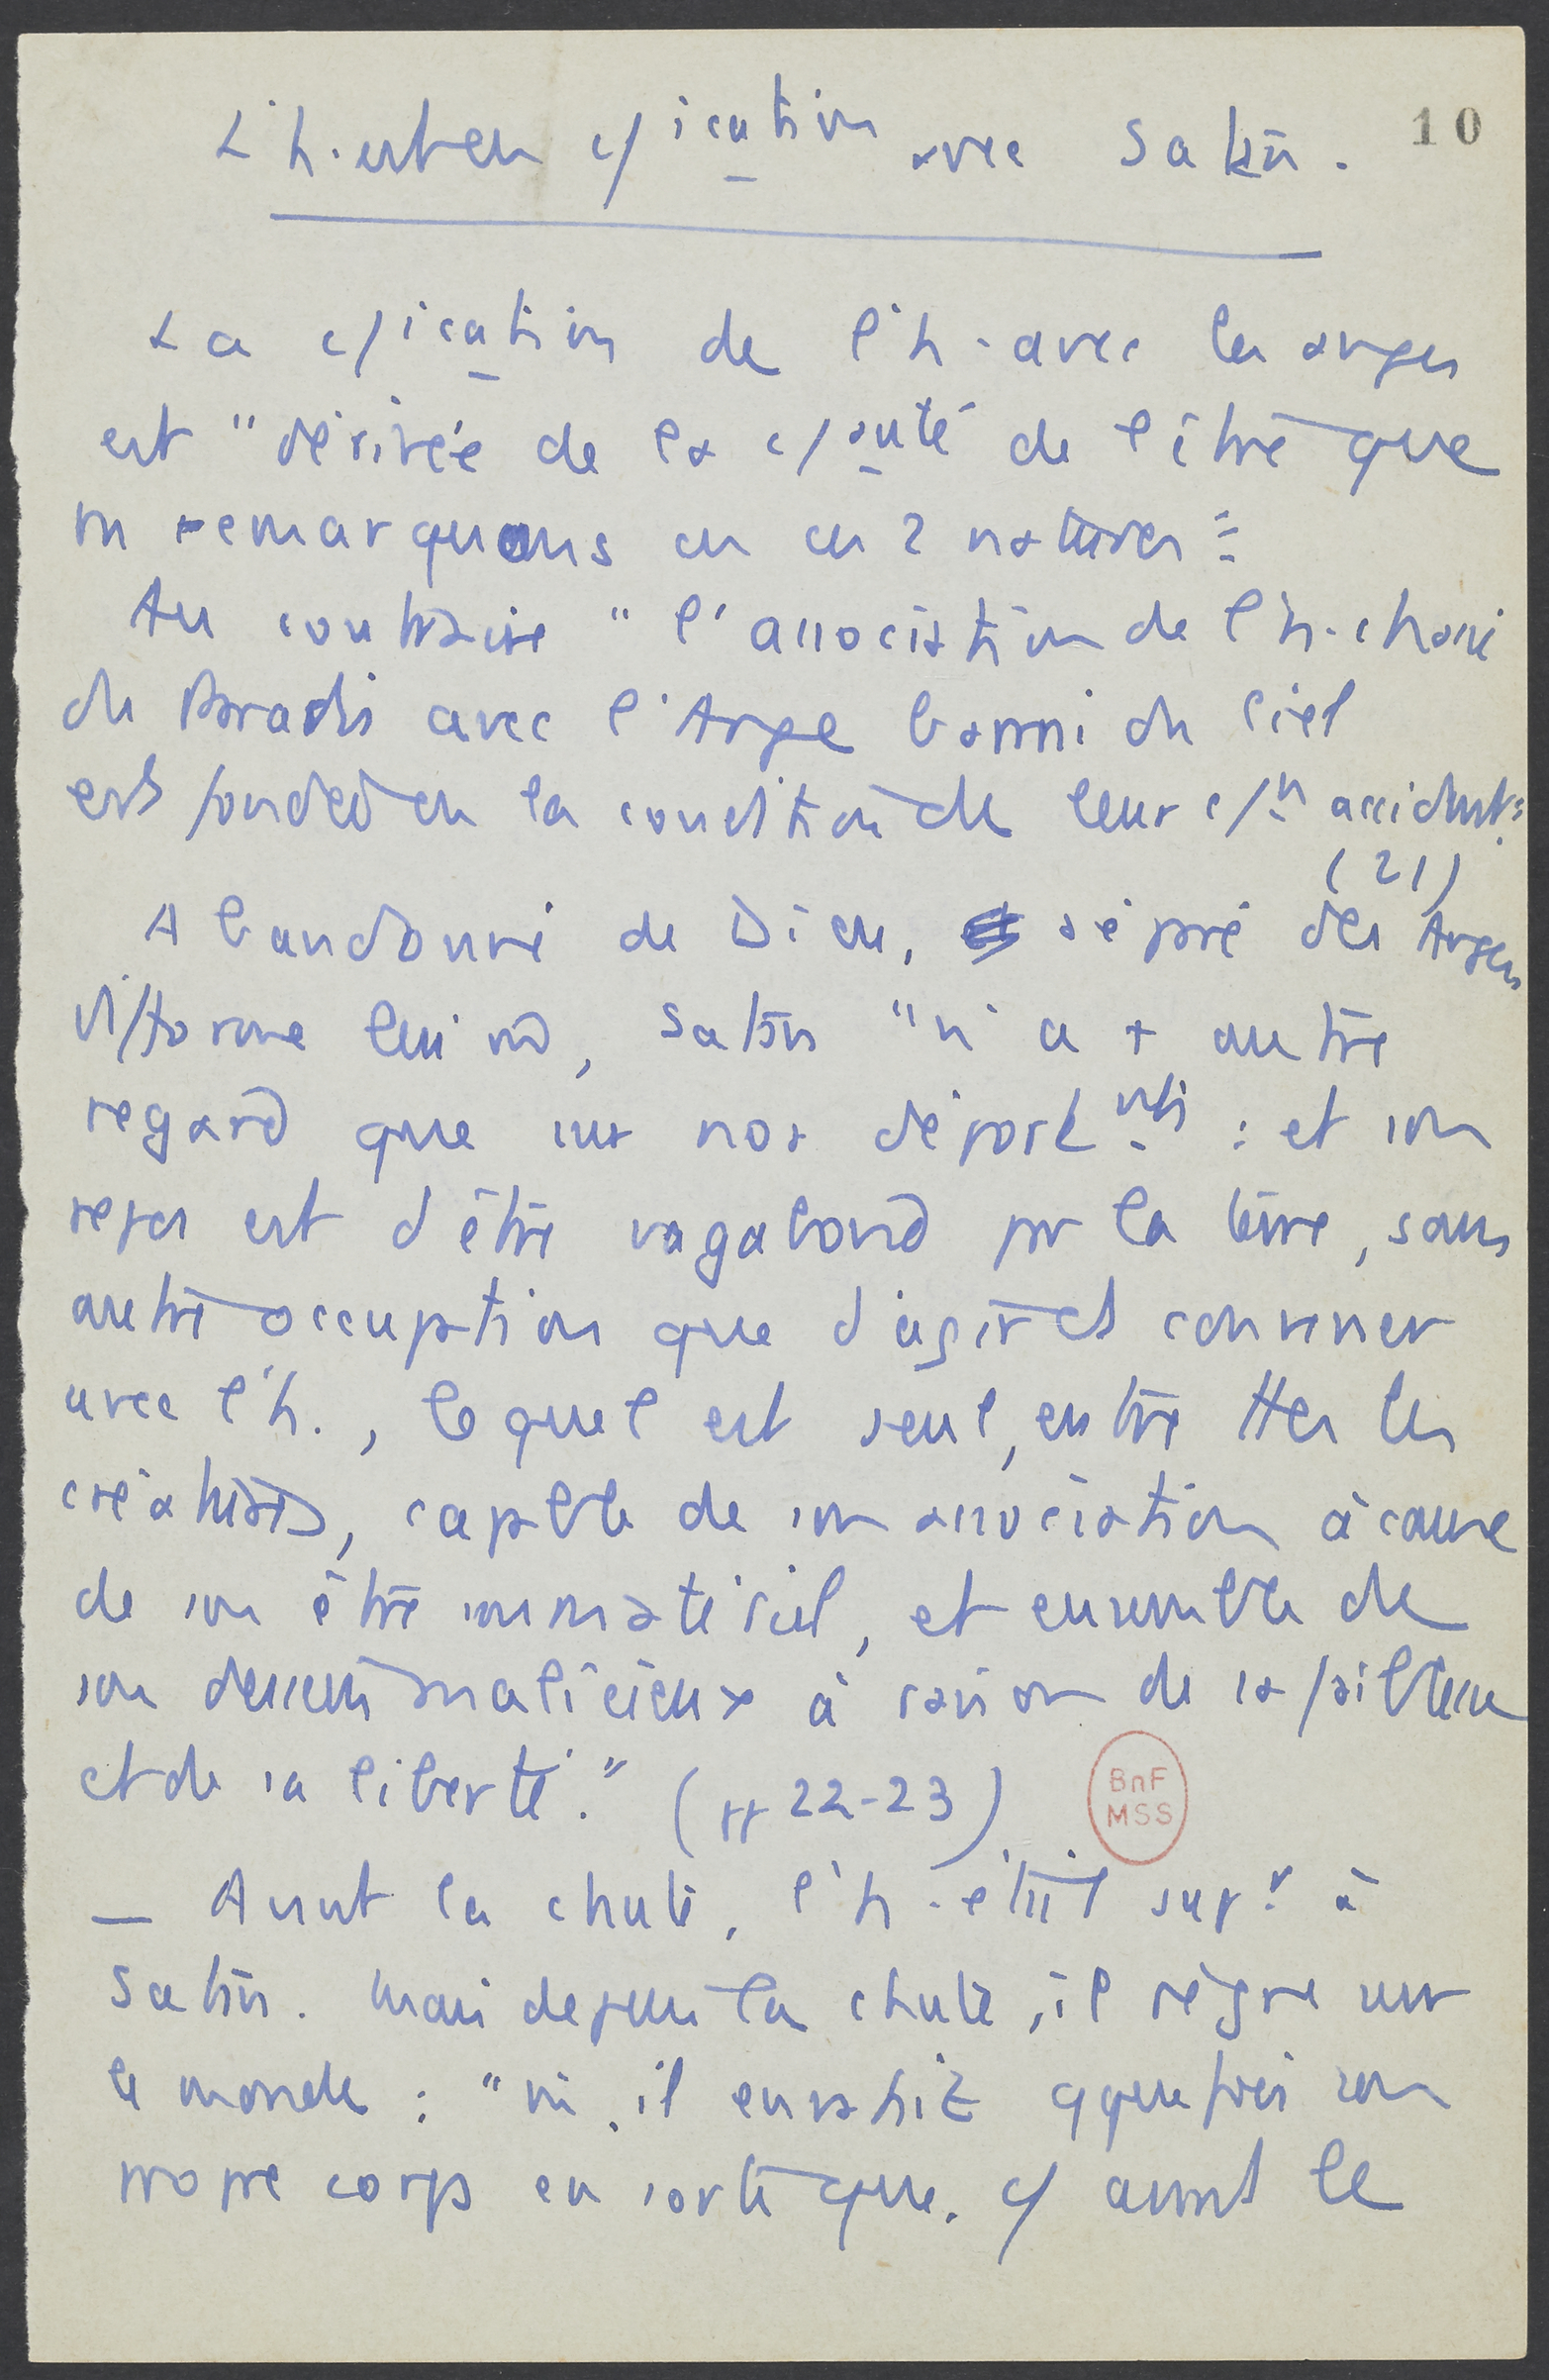 10
L'h. est en c/ication avec Satan.
La c/ication de l'h. avec les anges
est "dérivée de la c/auté de l'être que
ns remarquons en ces 2 natures".
Au contraire "l'association de l'h. chassé
du Paradis avec l'Ange banni du Ciel
est fondée en la condition de leur c/n accident".
(21)
Abandonné de Dieu, séparé des Anges
difforme lui md, Satan "n'a + autre
regard que sur nos déportmts : et son
repos est d'être vagabond par la terre, sans
autre occupation que d'agir et converser
avec l'h., lequel est seul, entre ttes les
créatures, capable de son association à cause
de son être immatériel, et ensemble de
son dessein malicieux à raison de sa faiblesse
et de sa liberté." (pp 22-23)
BnF
MSS
— Avant la chute, l'h. était supr à
Satan. Mais depuis la chute, il règne sur
le monde : "ni, il envahit qquefois son
propre corps en sorte que, c/ avant le